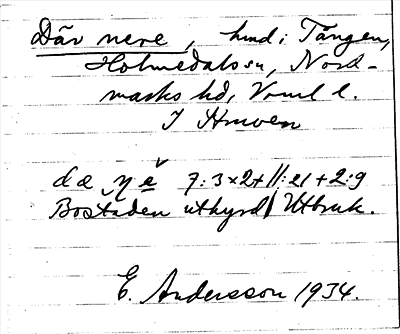 Där nere, hmd i Tången,
Holmedals sn, Nord-
marks hd, Vrml l.
I Hmven
dæ ɳ ě 7:3×2+11:21+2:9
Bostaden uthyrd Utbruk.
E. Andersson 1934.